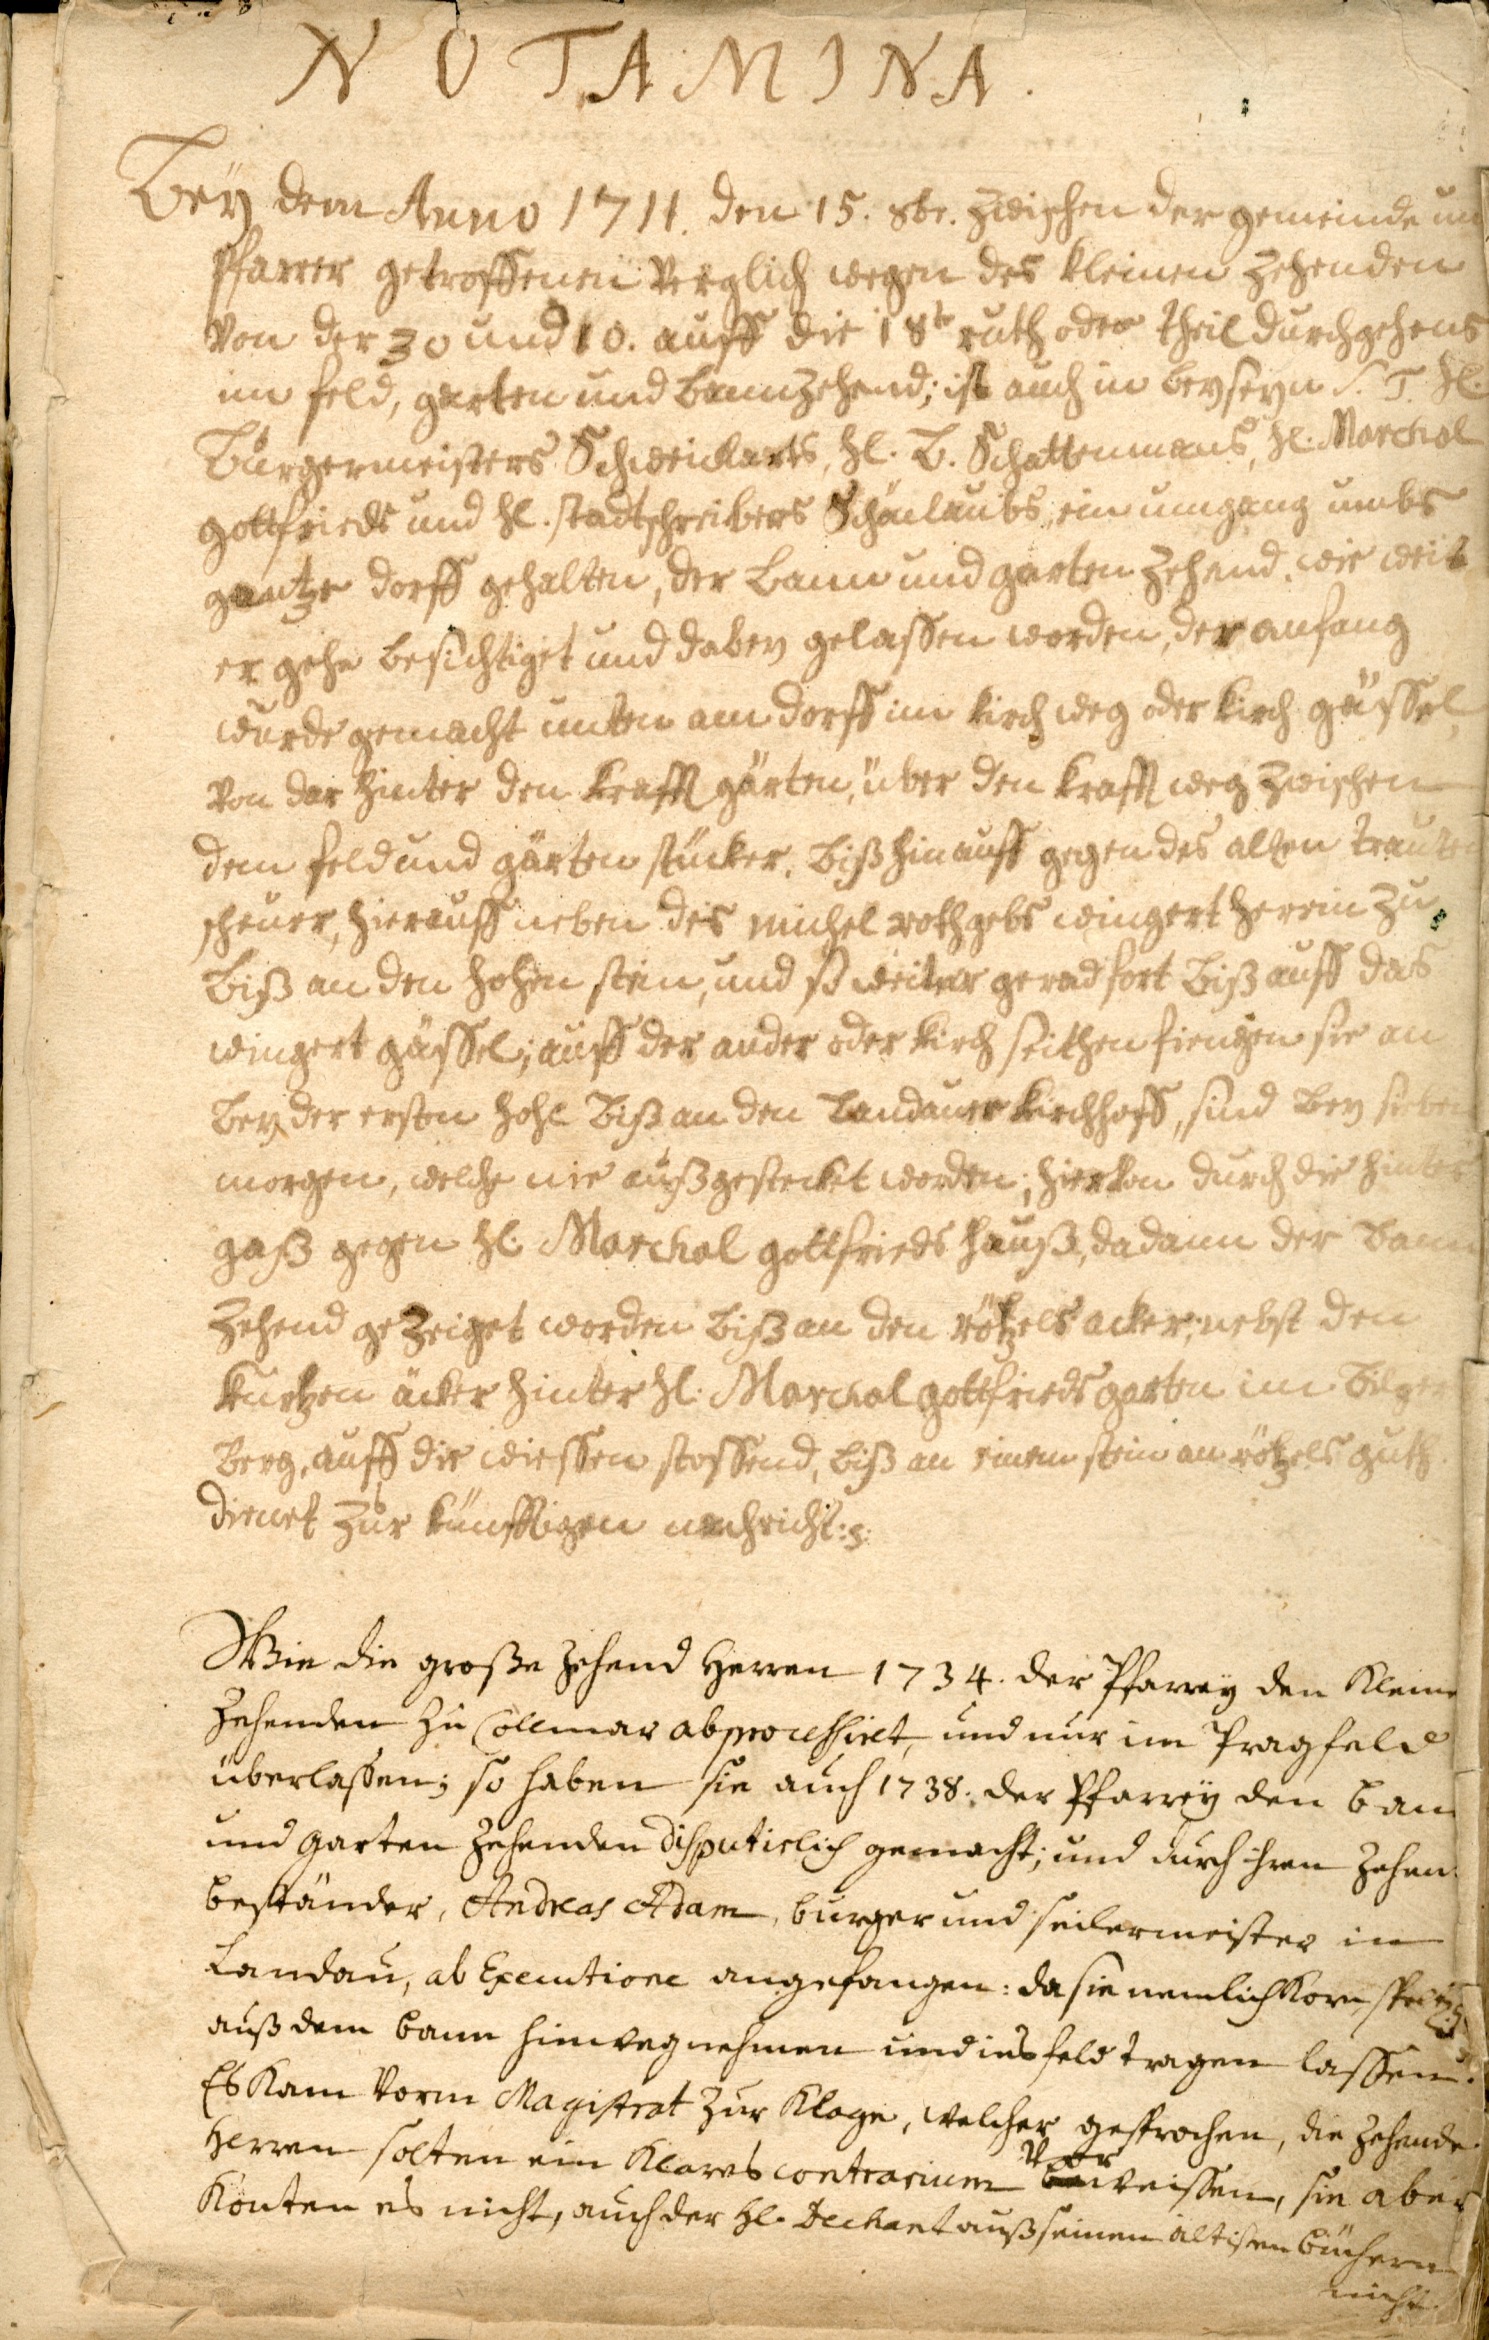 NOTAMINA.
Beÿ dem Anno 1711. den 15. 8br. zwischen der gemeinde un
Pfarrer getroffenen Verglich wegen des kleinen Zehenden
Von der 30 und 10. auff die 18te ruth oder theil durchgehens
im feld, garten und bannzehend; ist auch in beyseyn S. T. Hl.
Bürgermeisters Schweickarts, Hl. B. Schattenmans, Hl. Marchal
gottfrieds und Hl. stadtschreibers Schönlaubs, ein umgang umbs
gantze dorff gehalten, der bann und garten Zehend, wie weit
er gehe besichtiget und dabey gelassen worden, der anfang
wurde gemacht unten am dorff im kirch weg oder kirch gässel,
Von dar hinter den krafft gärten, über den krafft weg zwischen
dem feld und gärten stücker, biß hinauff gegen des alten Trauten
scheuer, hierauff neben des michel rothgebs wingert herein zu
biß an den hohen stein, und so weiter gerad fort biß auff das
wingert gässel; auff der ander oder kirch seithen fiengen sie an
bey der ersten hohl biß an den Landauer kirchhoff, sind bey sieben
morgen, welche nie außgestecket worden; hiervon durch die hinter
gaß gegen Hl. Marchal gottfrieds hauß, da dann der Bann
Zehend geZeiget worden biß an den rötzels acker, nebst den
kurtzen äcker hinter Hl. Marchal gottfrieds garten im Bilger
berg, auff die wiessen stossend, biß an einem stein an rötzels guth.
dienet zur künfftigen nachricht.
Wie die große Zehend Herren 1734. der Pfarreÿ den Kleine
Zehenden zu Collmar abprocessirt, und nur im Pragfeld
überlaßen; so haben sie auch 1738. der Pfarreÿ den ban
und garten Zehenden disputirlich gemacht; und durch ihren Zehen
beständer, Andreas Adam, burger und seilermeister in
Landau, ab Executione angefangen: da sie nemlich Korn
auß dem bann hinwegnehmen und ins feld tragen lassen.
Es Kam Vorm Magistrat zur Klage, welcher gesprochen, die Zehende
Herren solten ein Klares contrarium Vorweissen, sie aber
Konten es nicht, auch der Hl. Dechant auß seinen ältisten büchern
nicht.